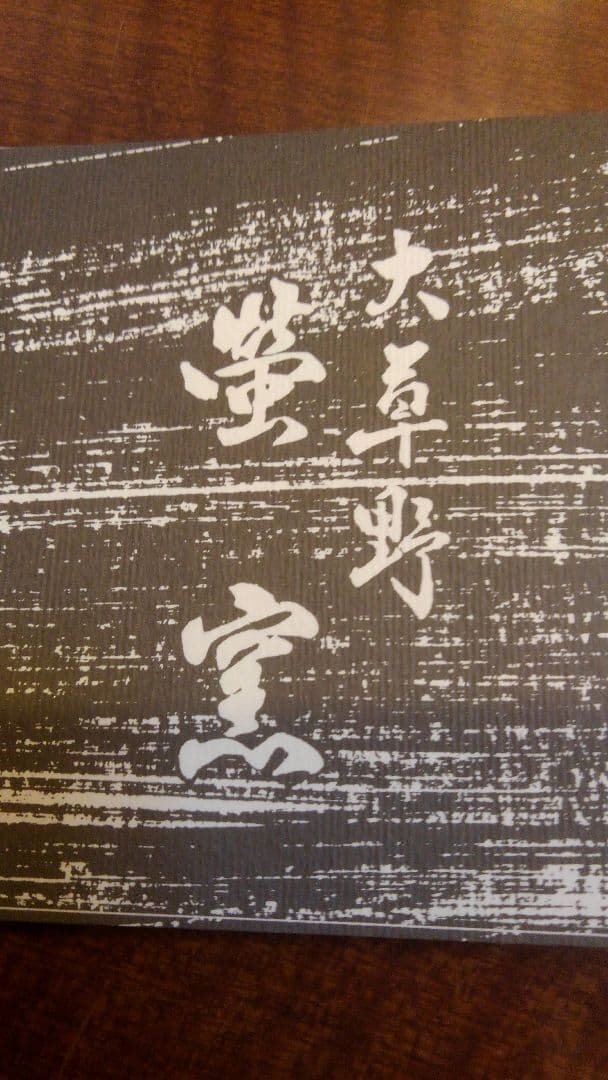 大草野
螢窯